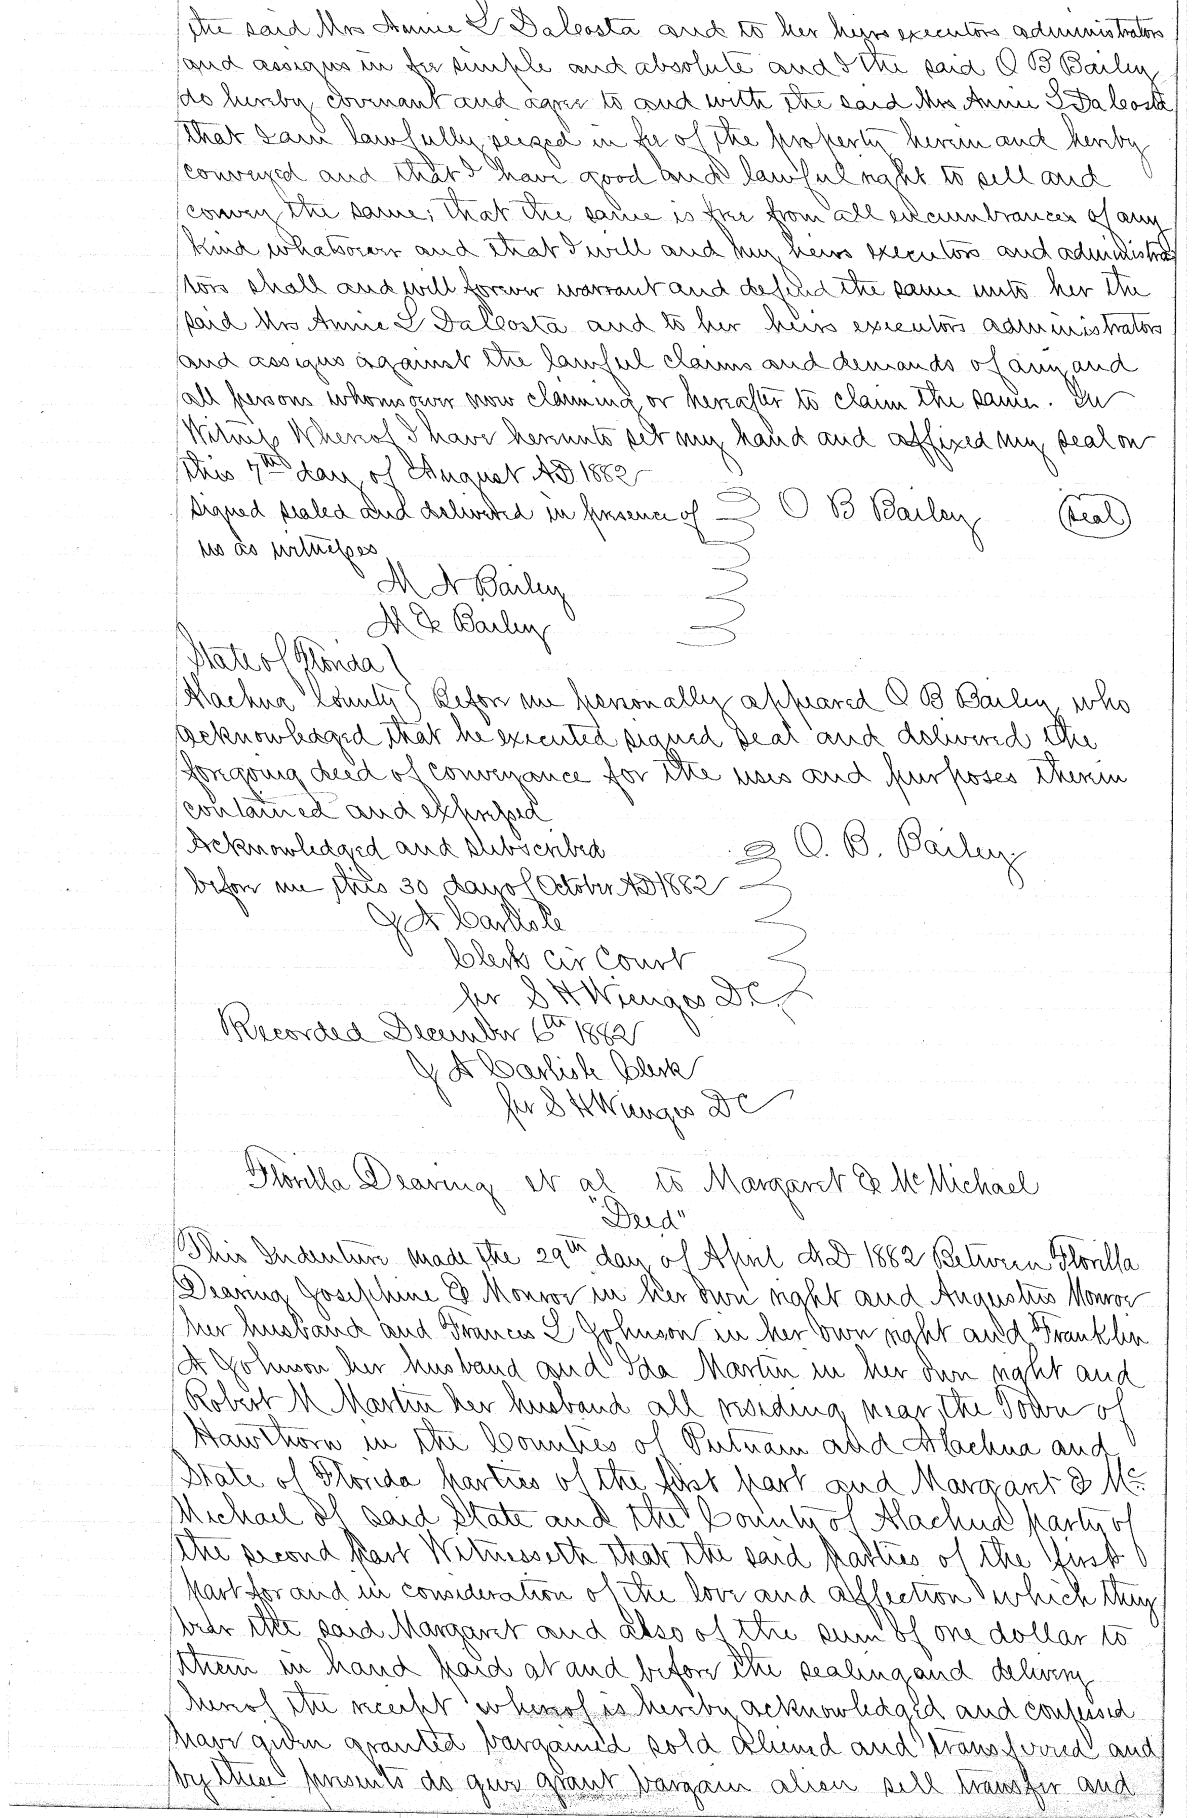 the said Mrs Annie L DaCosta and to her heirs executors administrators
and assigns in fee simple and absolute and I the said O B Bailey
do hereby covenant and agree to and with the said Mrs Annie L DaCosta
that I am lawfully seized in fee of the property herein and hereby
conveyed and that I have good and lawful right to sell and
convey the same; that the same is free from all encumbrances of any
kind whatsoever and that I will and my heirs executors and administra
tors shall and will forever warrant and defend the same unto her the
said Mrs Annie L DaCosta and to her heirs executors administrators
and assigns against the lawful claims and demands of any and
all persons whomsoever now claiming or hereafter to claim the same. In
Witness Whereof I have hereunto set my hand and affixed my seal on
this 7th day of August AD 1882
Signed sealed and delivered in presence of O B Bailey (seal)
us as witnesses
M A Bailey
M E Bailey
State of Florida
Alachua County Before me personally appeared O B Bailey who
acknowledged that he executed signed seal and delivered the
foregoing deed of conveyance for the uses and purposes therein
contained and expressed
Acknowledged and subscribed O. B. Bailey
before me this 30 day of October AD 1882
J A Carlisle
Clerk Cir Court
per S H Wienges D.C.
Recorded December 6th 1882
J A Carlisle Clerk
per S H Wienges DC
Florilla Dearing et al to Margaret E McMichael
"Deed"
This Indenture made the 29th day of April AD 1882 Between Florilla
Dearing Josephine E Monroe in her own right and Augustus Monroe
her husband and Frances L Johnson in her own right and Franklin
A Johnson her husband and Ida Martin in her own right and
Robert M Martin her husband all residing near the Town of
Hawthorn in the Counties of Putnam and Alachua and
State of Florida parties of the first part and Margaret E Mc
Michael of said State and the County of Alachua party of
the second part Witnesseth that the said parties of the first
part for and in consideration of the love and affection which they
bear the said Margaret and also of the sum of one dollar to
them in hand paid at and before the sealing and delivery
hereof the receipt whereof is hereby acknowledged and confessed
have given granted bargained sold aliened and transferred and
by these presents do give grant bargain alien sell transfer and